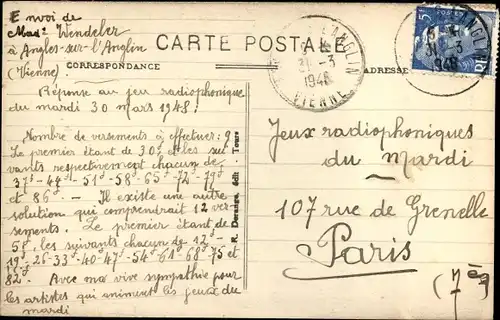 Envoi de
Mad^e Wendeler
à Angles-sur-l'Anglin
(Vienne)
CARTE POSTALE
CORRESPONDANCE
ADRESSE
Réponse au jeu radiophonique
du mardi 30 mars 1948.
Nombre de versements à effectuer: 9
Le premier étant de 30^s et les sui-
vants respectivement chacun de:
37^s - 44^s - 51^s - 58^s - 65^s - 72^s - 79^s
et 86^s — Il existe une autre
solution qui comprendrait 12 ver-
sements. Le premier étant de
5^s, les suivants chacun de 12^s
19^s - 26 - 33 - 40 - 47 - 54 - 61 - 68 - 75 et
82^s. Avec ma vive sympathie pour
les artistes qui animent les jeux du
mardi
R. Dorange, édit. Tours
L'ANGLIN
31 -3
1948
VIENNE
5F
31 -3
1948
Jeux radiophoniques
du Mardi
107 rue de Grenelle
Paris
(7^è)